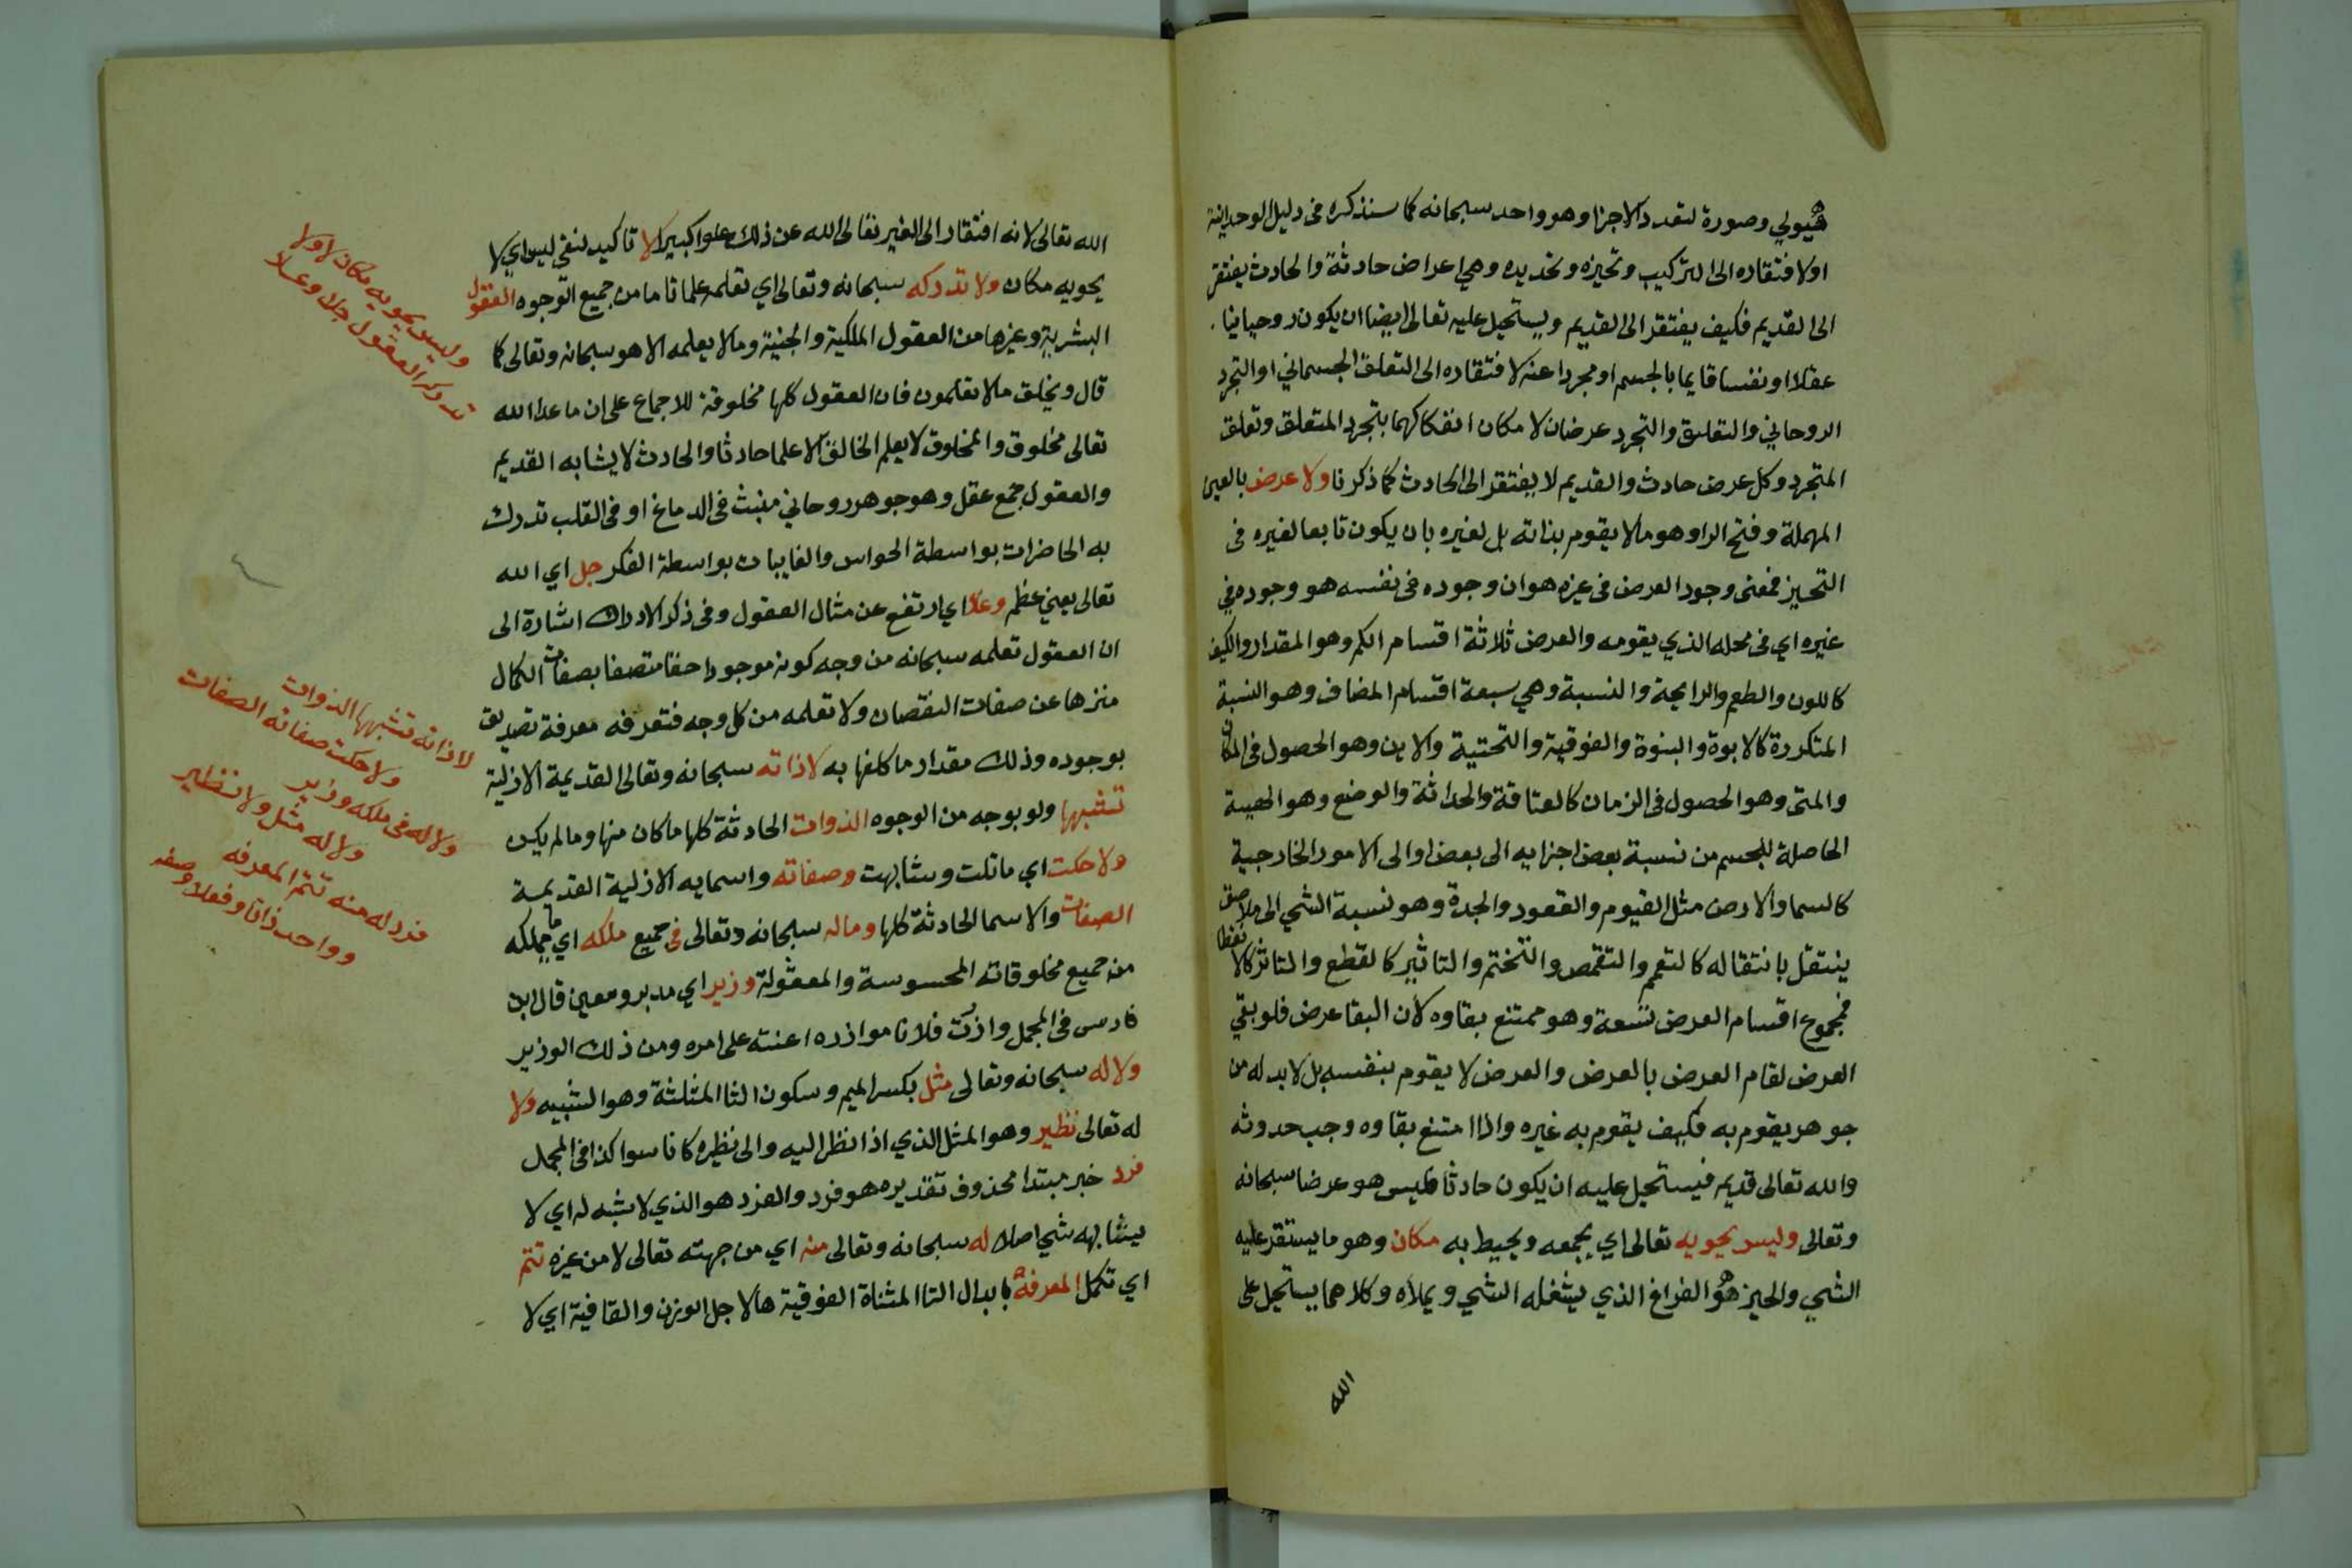 هيولي وصورة لتعدد الاجزا وهو واحد سبحانه كما سنذكره في دليل الوحدانية
اولا فتقاره الى التركيب وتحيزه وتحديده وهي اعراض حادثة والحادث يفتقر
الى القديم فكيف يفتقر الى القديم ويستحيل عليه تعالى ايضا ان يكون روحانيا
عقلا او نفسا قايما بالجسم او مجردا عنه لافتقاره الى التعلق الجسماني او التجرد
الروحاني والتعلق والتجرد عرضان لامكان انفكاكهما بتجرد المتعلق وتعلق
المتجرد وكل عرض حادث والقديم لا يفتقر الى الحادث كما ذكرنا ولا عرض بالعين
المهملة وفتح الرا وهو ما لا يقوم بذاته بل لغيره بان يكون تابعا لغيره في
التحيز فمعنى وجود العرض في غيره هو ان وجوده في نفسه هو وجوده في
غيره اي في محله الذي يقومه والعرض ثلاثة اقسام الكم وهو المقدار والكيف
كاللون والطعم والرايحة والنسبة وهي سبعة اقسام المضاف وهو النسبة
المتكررة كالابوة والبنوة والفوقية والتحتية والاين وهو الحصول في المكان
والمتى وهو الحصول في الزمان كالعتاقة والحداثة والوضع وهو الهيية
الحاصلة للجسم من نسبة بعض اجزايه الى بعض او الى الامور الخارجية
كالسما والارض مثل القيوم والقعود والجدة وهو نسبة الشي الى ملاصق
ينتقل بانتقاله كالتعمم والتقمص والتختم والتاثير كالقطع والتاثر كالانقطا
فمجموع اقسام العرض تسعة وهو ممتنع بقاوه لان البقا عرض فلو بقي
العرض لقام العرض بالعرض والعرض لا يقوم بنفسه بل لا بد له من
جوهر يقوم به فكيف يقوم به غيره واذا امتنع بقاوه وجب حدوثه
والله تعالى قديم فيستحيل عليه ان يكون حادثا فليس هو عرضا سبحانه
وتعالى وليس يحويه تعالى اي يجمعه ويحيط به مكان وهو ما يستقر عليه
الشي والحيز هو الفراغ الذي يشغله الشي ويملاه وكلاهما يستحيل على
الله
الله تعالى لانه افتقار الى الغير تعالى الله عن ذلك علوا كبيرا لا تاكيد لنفي ليس اي لا
يحويه مكان ولا تدركه سبحانه وتعالى اي تعلمه علما تاما من جميع الوجوه العقول
البشرية وغيرها من العقول الملكية والجنية وما لا يعلمه الا هو سبحانه وتعالى كما
قال ويخلق ما لا تعلمون فان العقول كلها مخلوقة للاجماع على ان ما عدا الله
تعالى مخلوق والمخلوق لا يعلم الخالق الا علما حادثا والحادث لا يشابه القديم
والعقول جمع عقل وهو جوهر روحاني منبث في الدماغ او في القلب تدرك
به الحاضرات بواسطة الحواس والغايبات بواسطة الفكر جل اي الله
تعالى يعني عظم وعلا اي ارتفع عن مثال العقول وفي ذكر الادراك اشارة الى
ان العقول تعلمه سبحانه من وجه كونه موجودا حقا متصفا بصفات الكمال
منزها عن صفات النقصان ولا تعلمه من كل وجه فتعرفه معرفة تصديق
بوجوده وذلك مقدار ما كلفها به لا ذاته سبحانه وتعالى القديمة الازلية
تشبهها ولو بوجه من الوجوه الذوات الحادثة كلها ما كان منها وما لم يكن
ولا حكت اي ماثلت وشابهت وصفاته واسمايه الازلية القديمة
الصفات والاسما الحادثة كلها وماله سبحانه وتعالى في جميع ملكه اي ما يملكه
من جميع مخلوقاته المحسوسة والمعقولة وزير اي مدبر ومعين قال ابن
فارس في المجمل وازرت فلانا موازره اعنته على امره ومن ذلك الوزير
ولا له سبحانه وتعالى مثل بكسر الميم وسكون الثا المثلثة وهو الشبيه ولا
له تعالى نظير وهو المثل الذي اذا نظر اليه والى نظيره كانا سوا كذا في المجمل
فرد خبر مبتدا محذوف تقديره هو فرد والفرد هو الذي لا شبه له اي لا
يشابهه شي اصلا له سبحانه وتعالى منه اي من جهته تعالى لا من غيره تتم
اي تكمل المعرفه بابدال التا المثناة الفوقية ها لاجل الوزن والقافية اي لا
وليس يحويه مكان لا ولا
تدركه العقول جل وعلا
لا ذاته تشبهها الذوات
ولا حكت صفاته الصفات
ولا له في ملكه وزير
ولا له مثل ولا نظير
فرد له منه تتم المعرفه
وواحد ذاتا وفعلا وصفه